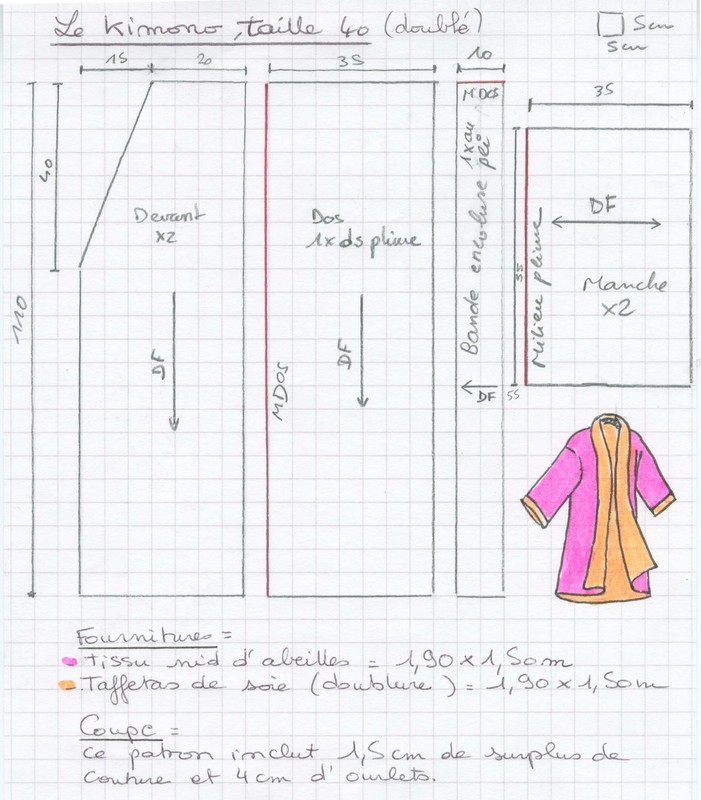 Le Kimono, taille 40 (doublé)
5cm
5cm
15
20
35
10
35
40
110
Devant
x2
DF
Dos
1x ds pliure
DF
MDOS
M DOS
1x au pli
Bande encolure
DF
55
35
Milieu pliure
DF
Manche
x2
Fournitures =
Tissu nid d'abeilles = 1,90 x 1,50m
Taffetas de soie (doublure) = 1,90 x 1,50m
Coupe =
Ce patron inclut 1,5cm de surplus de
couture et 4cm d'ourlets.